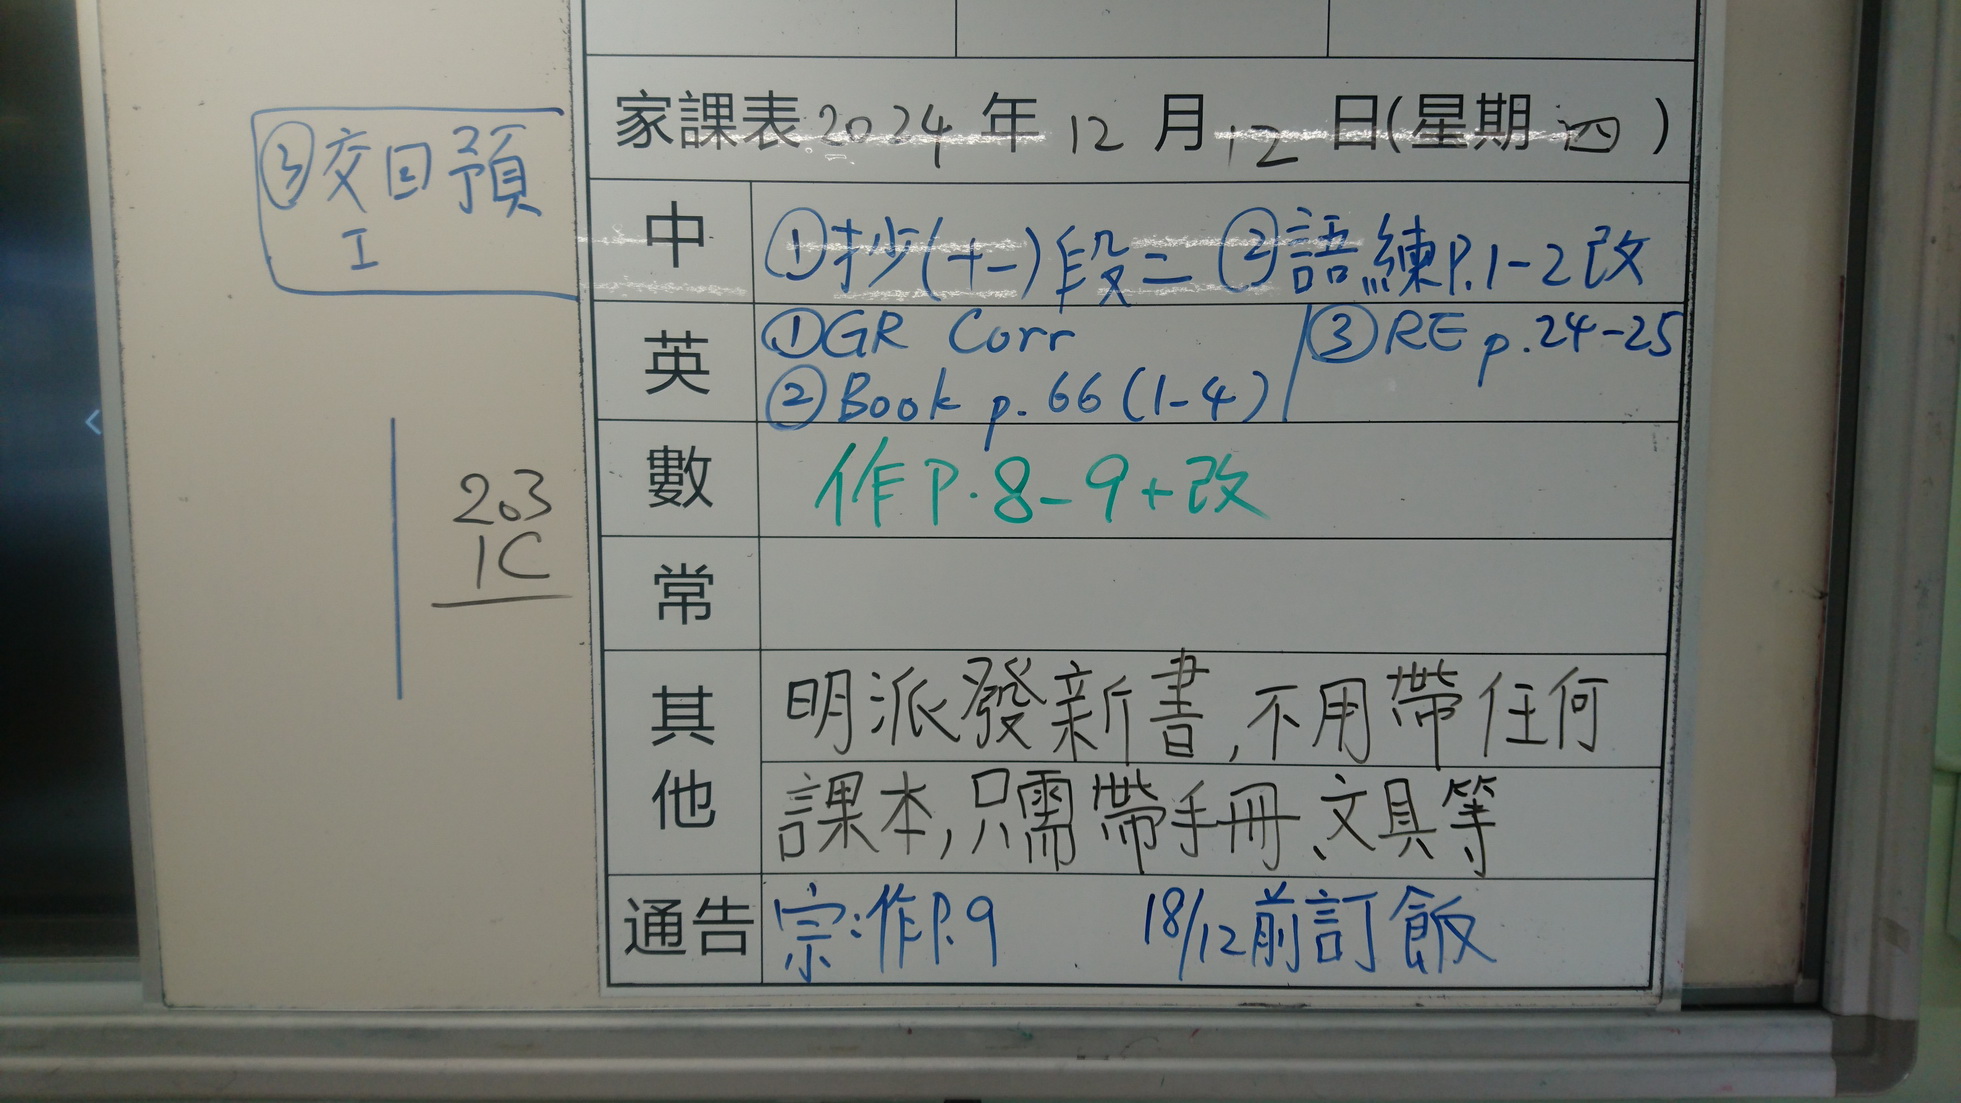 家課表 2024 年 12 月 12 日(星期 四)
③交回預
工
中 ①抄(十一)段二 ②語練P.1-2改
英 ①GR Corr ③RE p.24-25
②Book p.66 (1-4)
數 作P.8-9+改
203
1C
常
其他 明派發新書,不用帶任何
課本,只需帶手冊、文具等
通告 宗:作P.9 18/12前訂飯